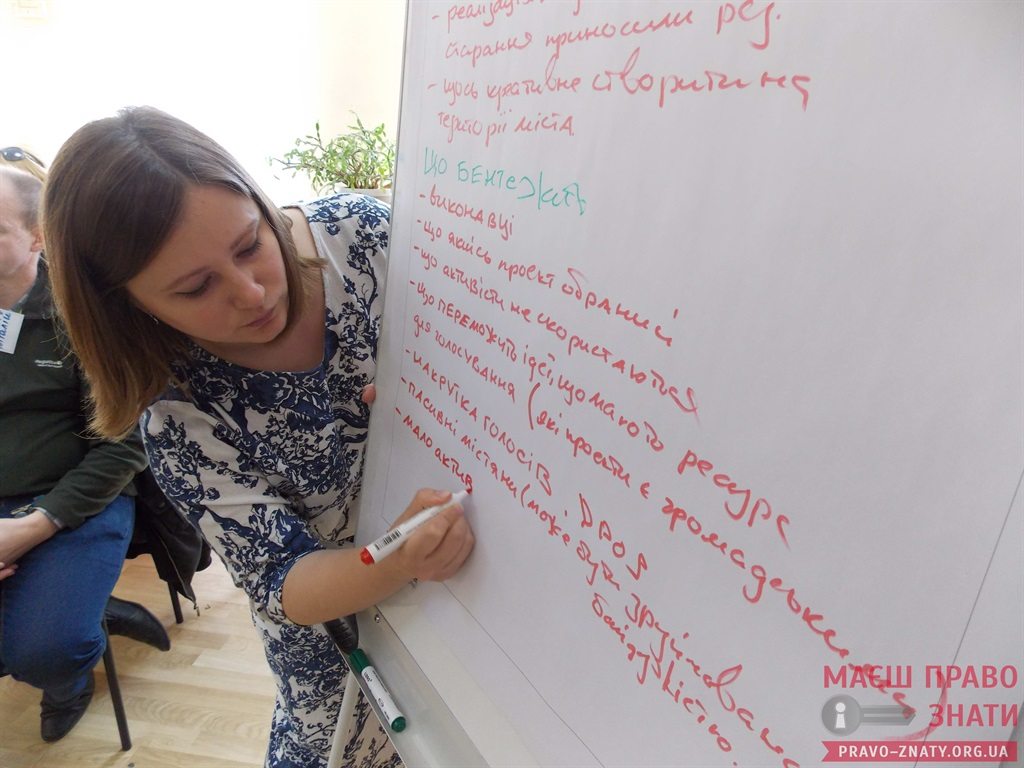 - реалізація
старання приносили рез.
- щось креативне створити на
території міста
Що бентежить
- виконавці
- що якийсь проєкт обраний
- що активісти не скористаються
- що ПЕРЕМОЖУТЬ ідеї, що мають ресурс
для голосування (які проєкти є громадськими
- НАКРУТКА ГОЛОСІВ
- ПАСИВНІ містяни (може бути зруйнована
байдужістю.
- мало актив
МАЄШ ПРАВО
ЗНАТИ
PRAVO-ZNATY.ORG.UA